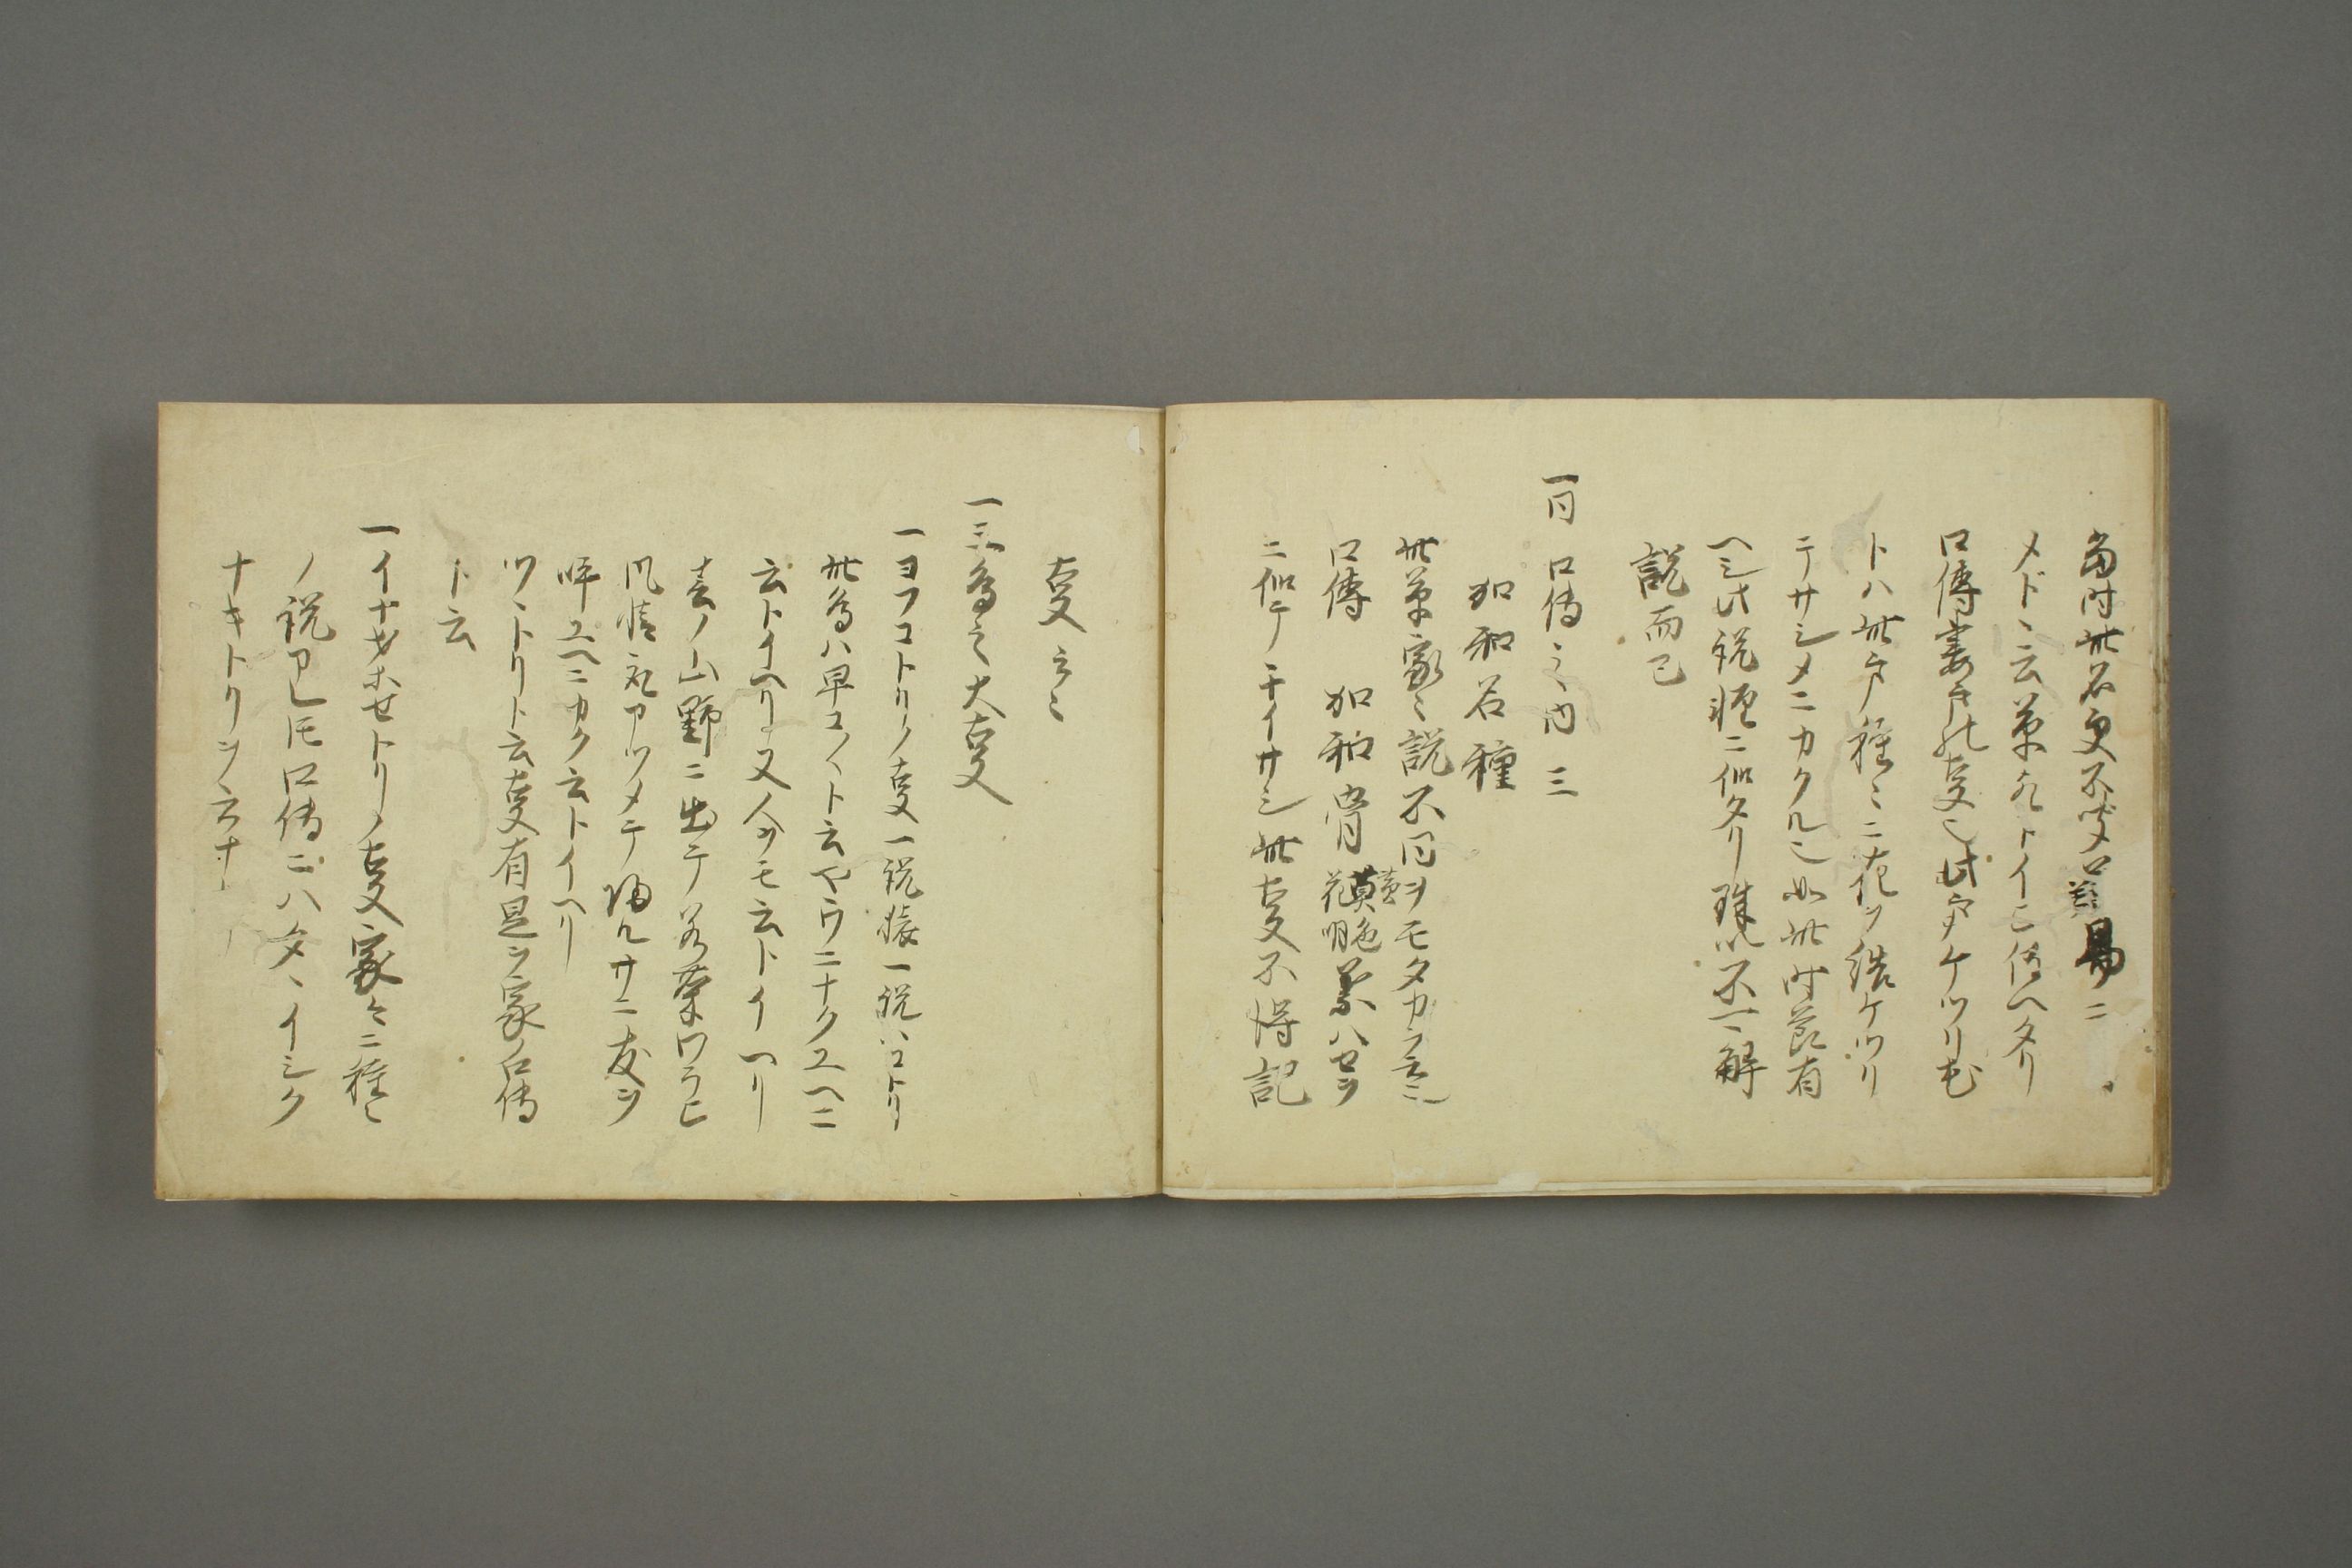 当時此名更不及口易ニ
メドヽ云草ナルトイヒ伝ヘタリ
口傳妻戸ノ事也此戸ケツリ花
トハ此戸種々ニ花ヲ結ケツリ
テサシメニカクル也如此時節有
ヘシ此説経ニ似タリ殊以不一解
説而已
一同 口傳之内 三
加和名種
此草家々説不同ヲモタカラ云也
口傳 加和骨 葉ハセリ
ニ似テチイサシ此事不得記
事云々
一三鳥之大事
一ヨフコトリノ事一説猿一説ハコトリ
此鳥ハ早コ〱ト云ヤウニナクユヘニ
云トイヘリ又人ヲモ云トイヘリ
春ノ山野ニ出テ若菜ワラヒ
風情取アツメテ帰ルサニ友ヲ
呼ユヘニカク云トイヘリ
ツヽトリト云事有是ヲ家ノ口傳
ト云
一イナオホセトリノ事家々ニ種々
ノ説アレ𪜈口傳ニハタヽイシク
ナキトリヲ云ナ